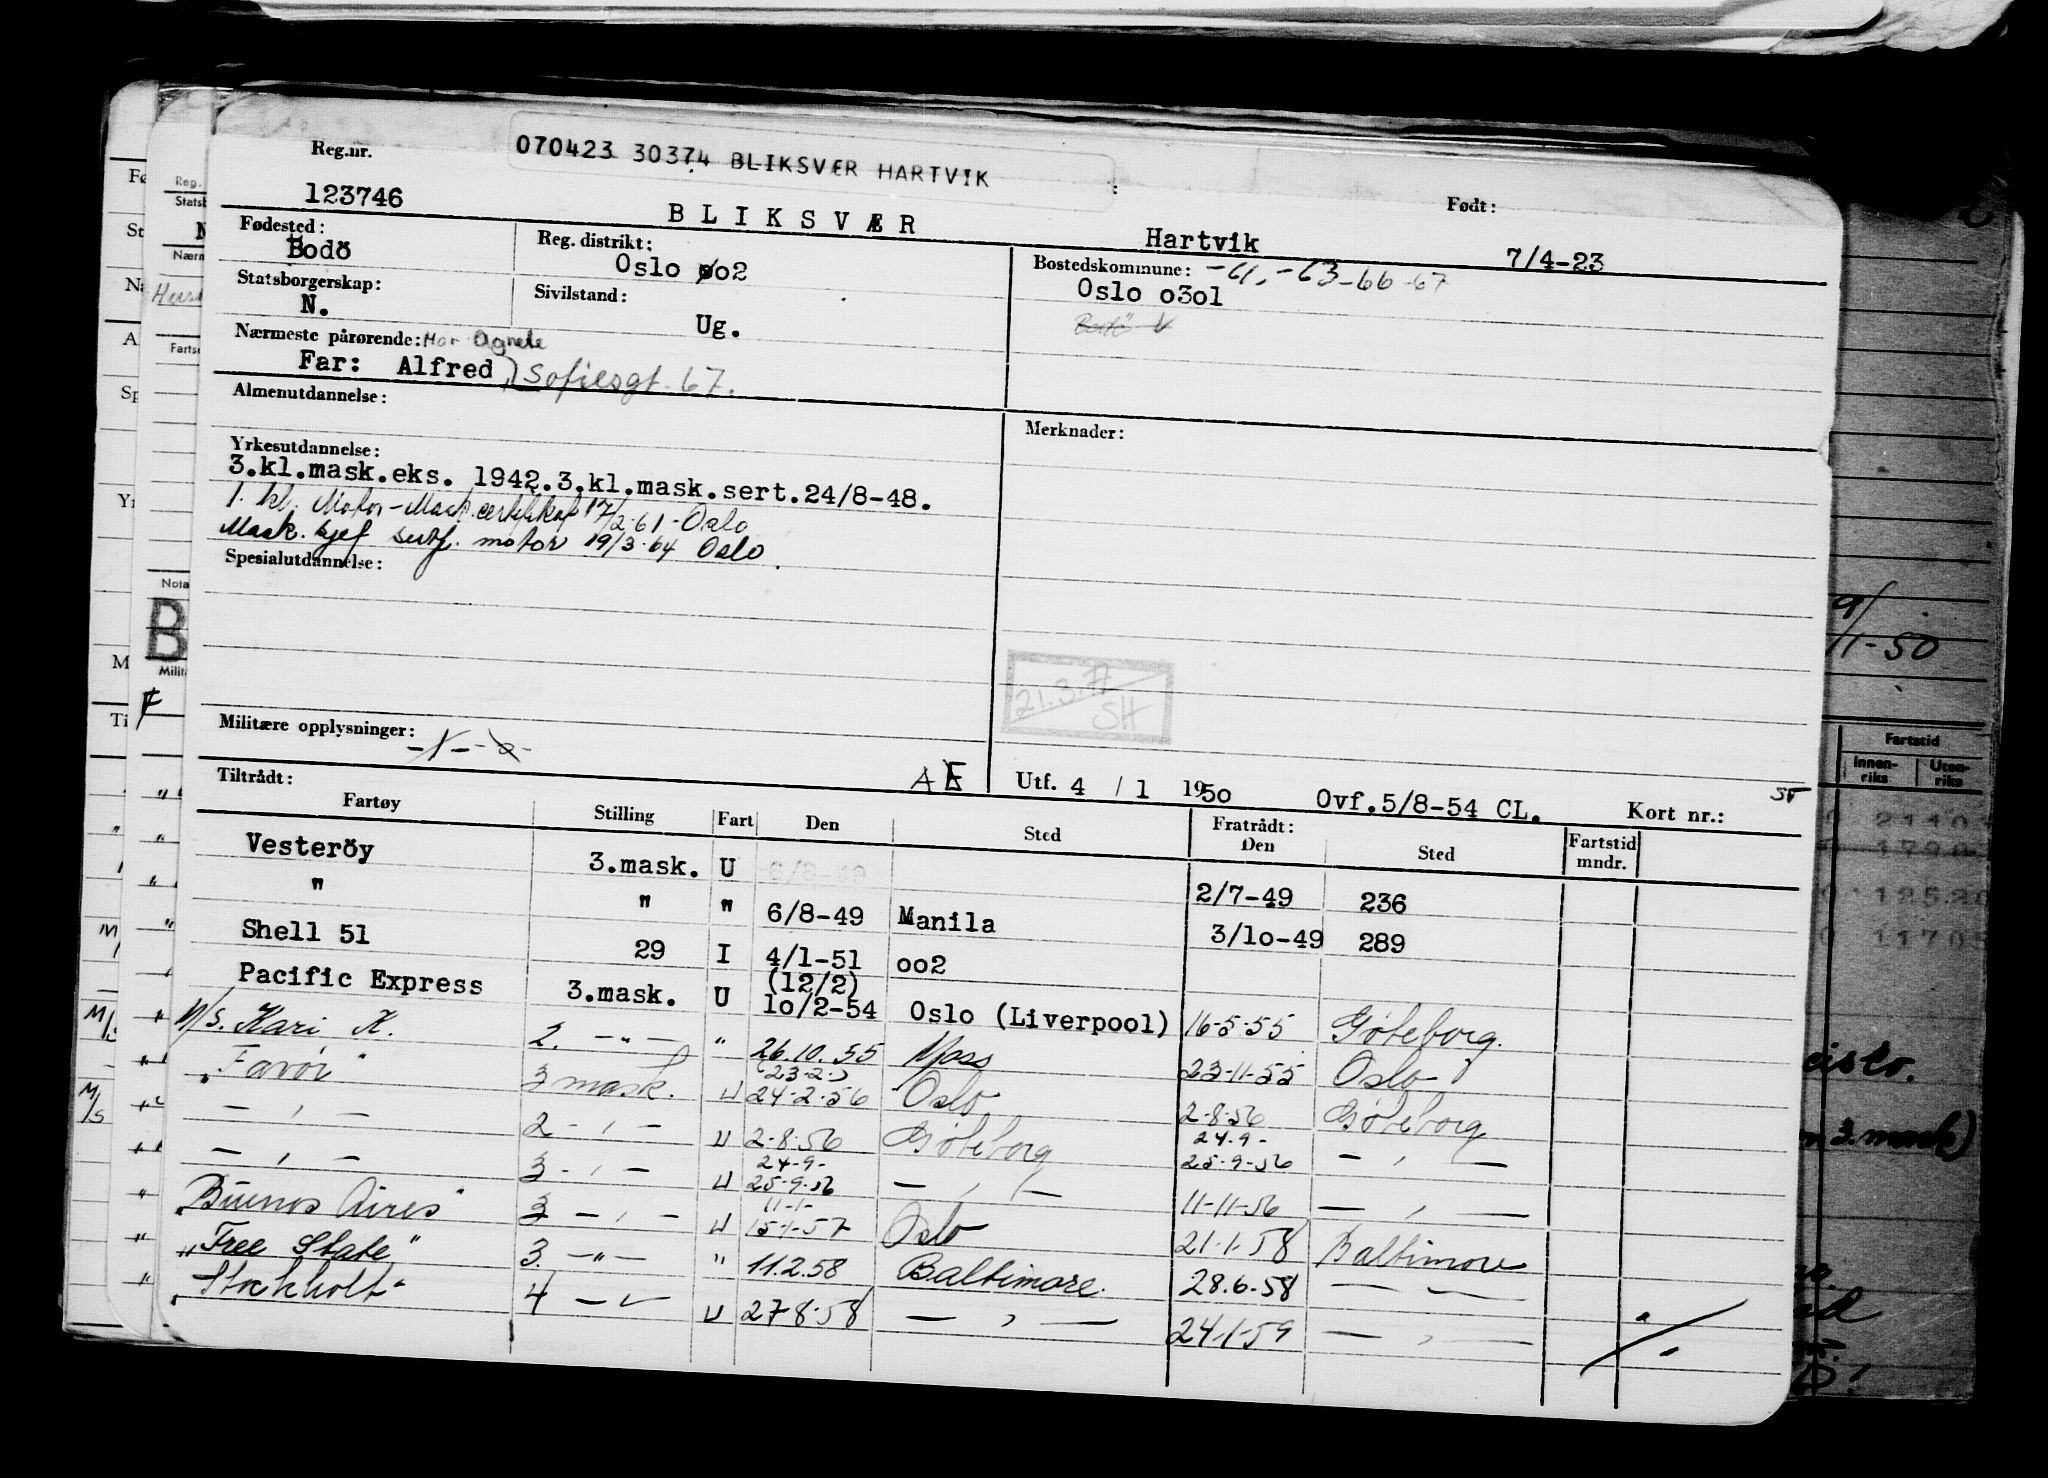 070423 30374 BLIKSVÆR HARTVIK
Reg.nr.
123746
BLIKSVÆR
Hartvik
Født:
7/4-23
Fødested:
Bodö
Reg. distrikt:
Oslo oo2
Bostedskommune: -61,-63-66-67
Oslo o3o1
Bodö
Statsborgerskap:
N.
Sivilstand:
Ug.
Nærmeste pårørende: Mor Agnete
Far: Alfred Sofiesgt. 67.
Almenutdannelse:
Merknader:
Yrkesutdannelse:
3.kl.mask.eks. 1942.3.kl.mask.sert.24/8-48.
1. kl. Motor-Mask. certifikat 17/2-61-Oslo
Mask. sjef sertf. motor 19/3-64 Oslo
Spesialutdannelse:
21.3.77
SH
Militære opplysninger:
Tiltrådt:
AE
Utf. 4 / 1 1950
Ovf.5/8-54 CL.
Kort nr.:
Fartøy Stilling Fart Den Sted Fratrådt: Den Sted Fartstid mndr.
Vesteröy 3.mask. U 6/8-49 2/7-49 236
" " " 6/8-49 Manila 3/1o-49 289
Shell 51 29 I 4/1-51 oo2
Pacific Express 3.mask. U (12/2) 1o/2-54 Oslo (Liverpool) 16-5-55 Göteborg.
M/S. Kari K. 2. -"- " 26.10.55 Moss 23-11-55 Oslo
" Favör" 3 mask. U 23-2- 24-2-56 Oslo 2-8-56 Göteborg
- , - 2 - , - U 2-8-56 Göteborg 24-9- 25-9-56 - , -
- , - 3 - , - U 24-9- 25-9-56 - , - 11-11-56 - , -
" Buenos Aires" 3 - , - U 11-1- 15-1-57 Oslo 21-1-58 Baltimore
" Free State" 3. -"- " 11.2.58 Baltimore. 28.6.58 - -
" Stockholt" 4 - - U 27-8-58 - , - 24-1-59 - , -
9/1-50
Fartstid
Innen-riks
Uten-riks